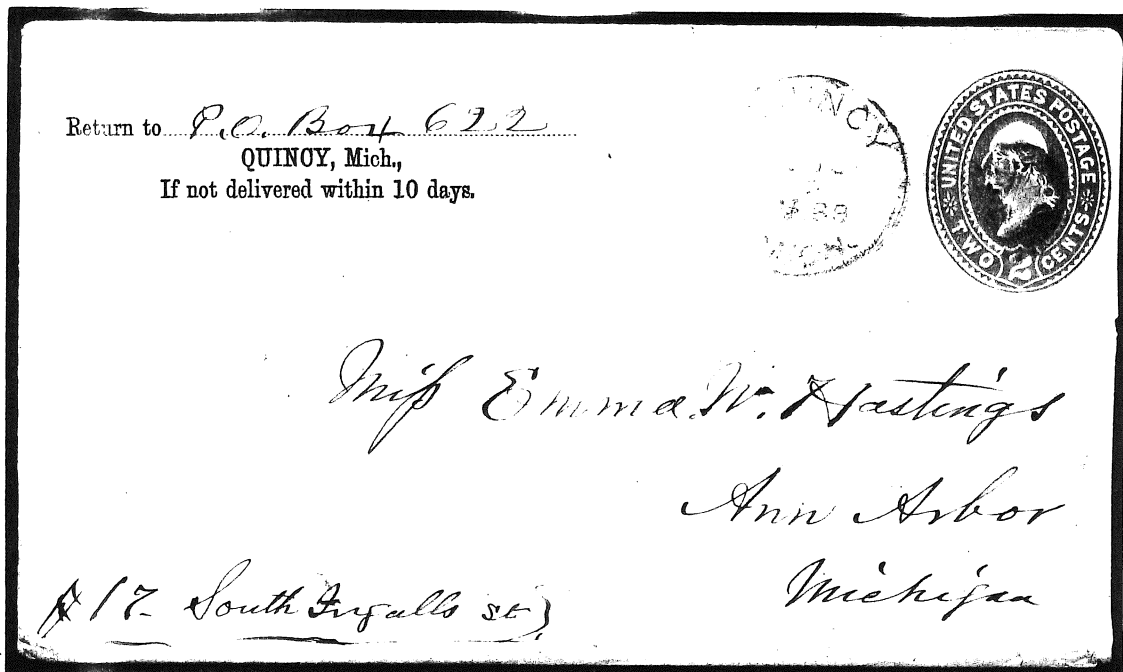 Return to P.O. Box 622
QUINCY, Mich.,
If not delivered within 10 days.
QUINCY
88
MICH.
UNITED STATES POSTAGE
TWO 2 CENTS
Miss Emma W. Hastings
Ann Arbor
Michigan
17 South Ingalls st)